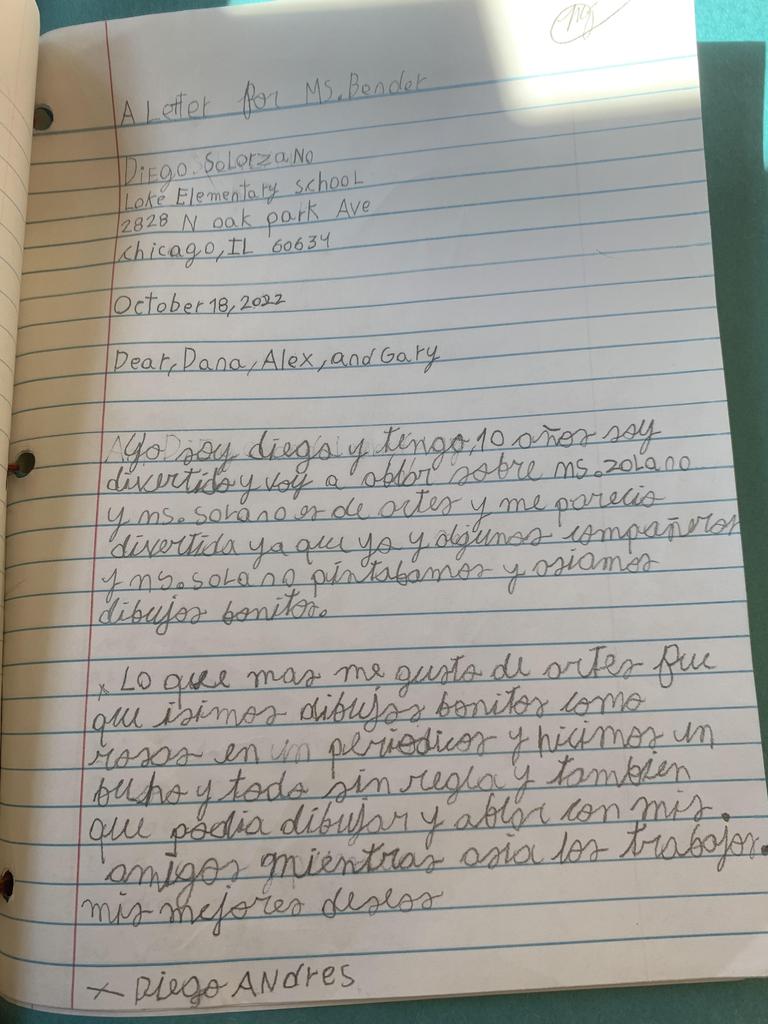 A Letter for Ms. Bender
Diego. Solorzano
Loke Elementary school
2828 N oak park Ave
chicago, IL 60634
October 18, 2022
Dear, Dana, Alex, and Gary
Yo soy diego y tengo, 10 años soy
divertido y voy a ablar sobre ms. zolano
y ms. solano es de artes y me parecio
divertida ya que yo y algunos compañeros
y ms. solano pintabamos y asiamos
dibujos bonitos.
x Lo que mas me gusto de artes fue
que isimos dibujos bonitos como
rosas en un periodicos y hicimos un
buho y todo sin regla y tambien
que podia dibujar y ablar con mis.
amigos mientras asia los trabajos.
mis mejores deseos
x Diego ANdres